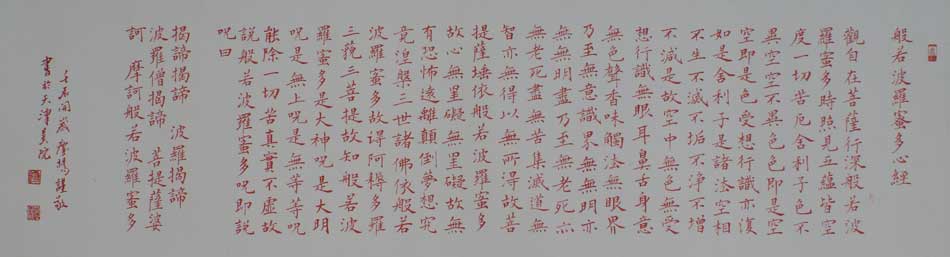 般若波羅蜜多心經
觀自在菩薩行深般若波
羅蜜多時照見五蘊皆空
度一切苦厄舍利子色不
異空空不異色色即是空
空即是色受想行識亦復
如是舍利子是諸法空相
不生不滅不垢不淨不增
不減是故空中無色無受
想行識無眼耳鼻舌身意
無色聲香味觸法無眼界
乃至無意識界無無明亦
無無明盡乃至無老死亦
無老死盡無苦集滅道無
智亦無得以無所得故菩
提薩埵依般若波羅蜜多
故心無罣礙無罣礙故無
有恐怖遠離顛倒夢想究
竟涅槃三世諸佛依般若
波羅蜜多故得阿耨多羅
三藐三菩提故知般若波
羅蜜多是大神呪是大明
呪是無上呪是無等等呪
能除一切苦真實不虛故
說般若波羅蜜多呪即說
呪曰
揭諦揭諦 波羅揭諦
波羅僧揭諦 菩提薩婆
訶 摩訶般若波羅蜜多
書於天津美院